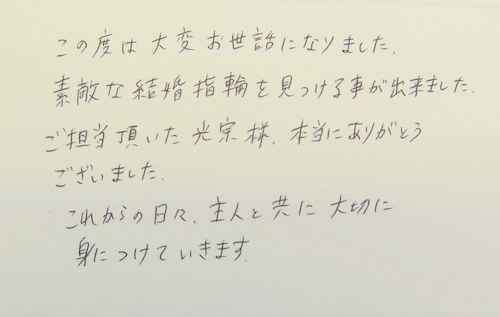 この度は大変お世話になりました.
素敵な結婚指輪を見つける事が出来ました.
ご担当頂いた光宗様、本当にありがとう
ございました.
これからの日々、主人と共に大切に
身につけていきます.